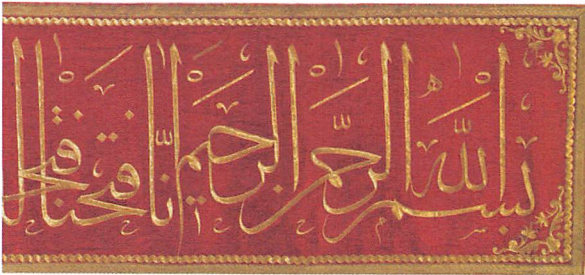 بسم الله الرحمن الرحيم إنا فتحنا لك فتحا